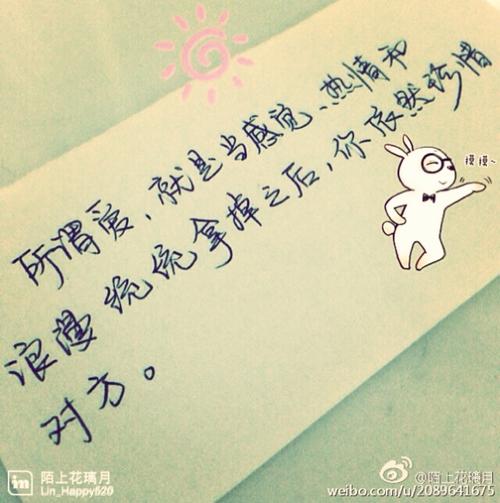 所谓爱，就是当感觉、热情和
浪漫统统拿掉之后，你依然珍惜
对方。
摸摸~
in
陌上花璃月
Lin_Happy520
@陌上花璃月
weibo.com/u/2089641675